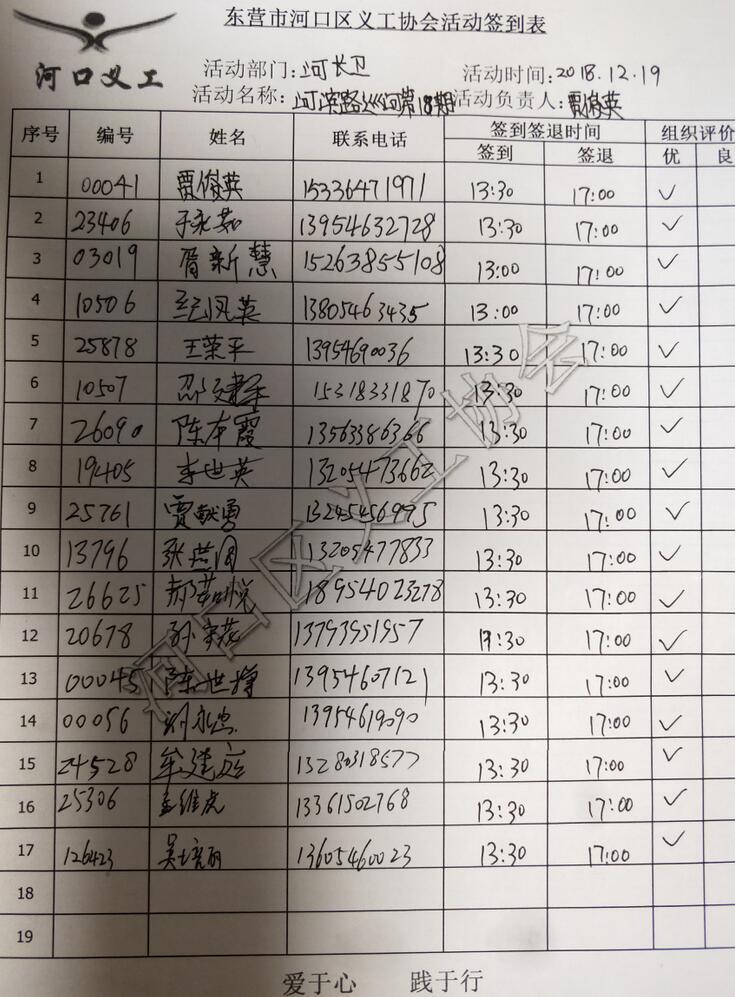 东营市河口区义工协会活动签到表
河口义工
活动部门:河长卫 活动时间:2018.12.19
活动名称:河滨路巡河第18期 活动负责人:贾俊英
序号 编号 姓名 联系电话 签到签退时间 组织评价
签到 签退 优 良
1 00041 贾俊英 15336471971 13:30 17:00 ✓
2 23406 于永茹 13954632728 13:30 17:00 ✓
3 03019 胥新慧 15263855108 13:00 17:00 ✓
4 10506 纪凤英 13805463435 13:00 17:00 ✓
5 25878 王荣平 13954690036 13:30 17:00 ✓
6 10507 15318331870 13:30 17:00 ✓
7 26090 陈本霞 13563386366 13:30 17:00 ✓
8 19405 李世英 13205473662 13:30 17:00 ✓
9 25761 贾献勇 13245456995 13:30 17:00 ✓
10 13796 张燕 13205477833 13:30 17:00 ✓
11 26625 郝若悦 18954023278 13:30 17:00 ✓
12 20678 孙 13793951957 17:00 ✓
13 00045 陈世 13954607121 13:30 17:00 ✓
14 00056 刘永忠 13954619090 13:30 17:00 ✓
15 24528 牟建 13280318577 13:30 17:00 ✓
16 25306 孟维虎 13361502768 13:30 17:00 ✓
17 126423 吴培丽 13605460023 13:30 17:00 ✓
18
19
爱于心 践于行
河口区义工协会